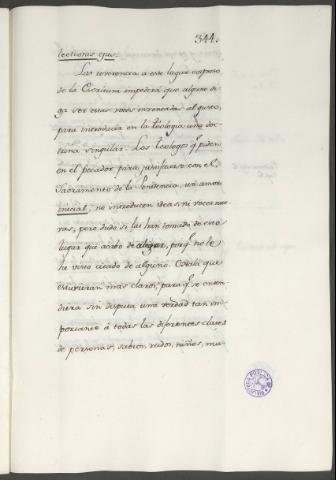 344.
lectionis ejus.
Las referencia à este lugar expreso
de la Escritura impedirà, que alguno di-
ga ser estas voces inventadas al gusto,
para introducir en la Teologia una doc-
trina singular. Los Teologos q.e piden
en el pecador para justificarse con el
Sacramento de la Penitencia un amor
inicial, no introducen idea ni voces nue-
vas, pero dudo si las han tomado de este
lugar que acabo de alegar, porq.e no le
he visto citado de alguno. Ojalà que
estuvieran mas claros, para q.e se enten-
diera sin disputa una verdad tan im-
portante à todas las diferentes clases
de personas, sabios, rudos, niños, mu-